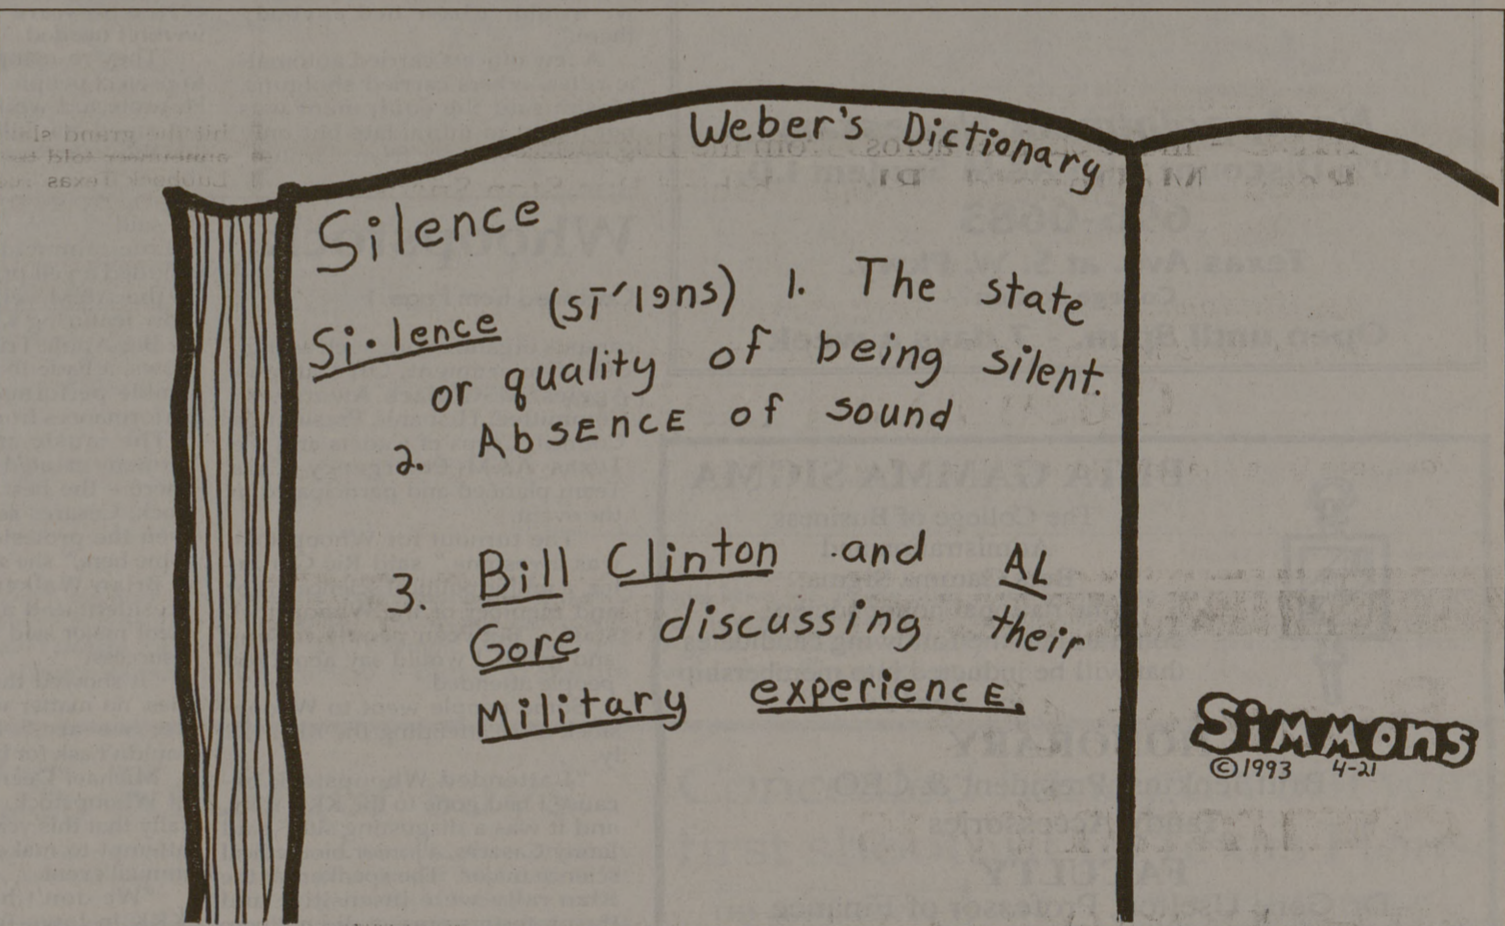 Weber's Dictionary
Silence
Si·lence (sī′ləns) 1. The state
or quality of being silent.
2. AbSENCE of sound
3. Bill Clinton and AL
Gore discussing their
Military experiencE.
SiMMons
©1993 4-21